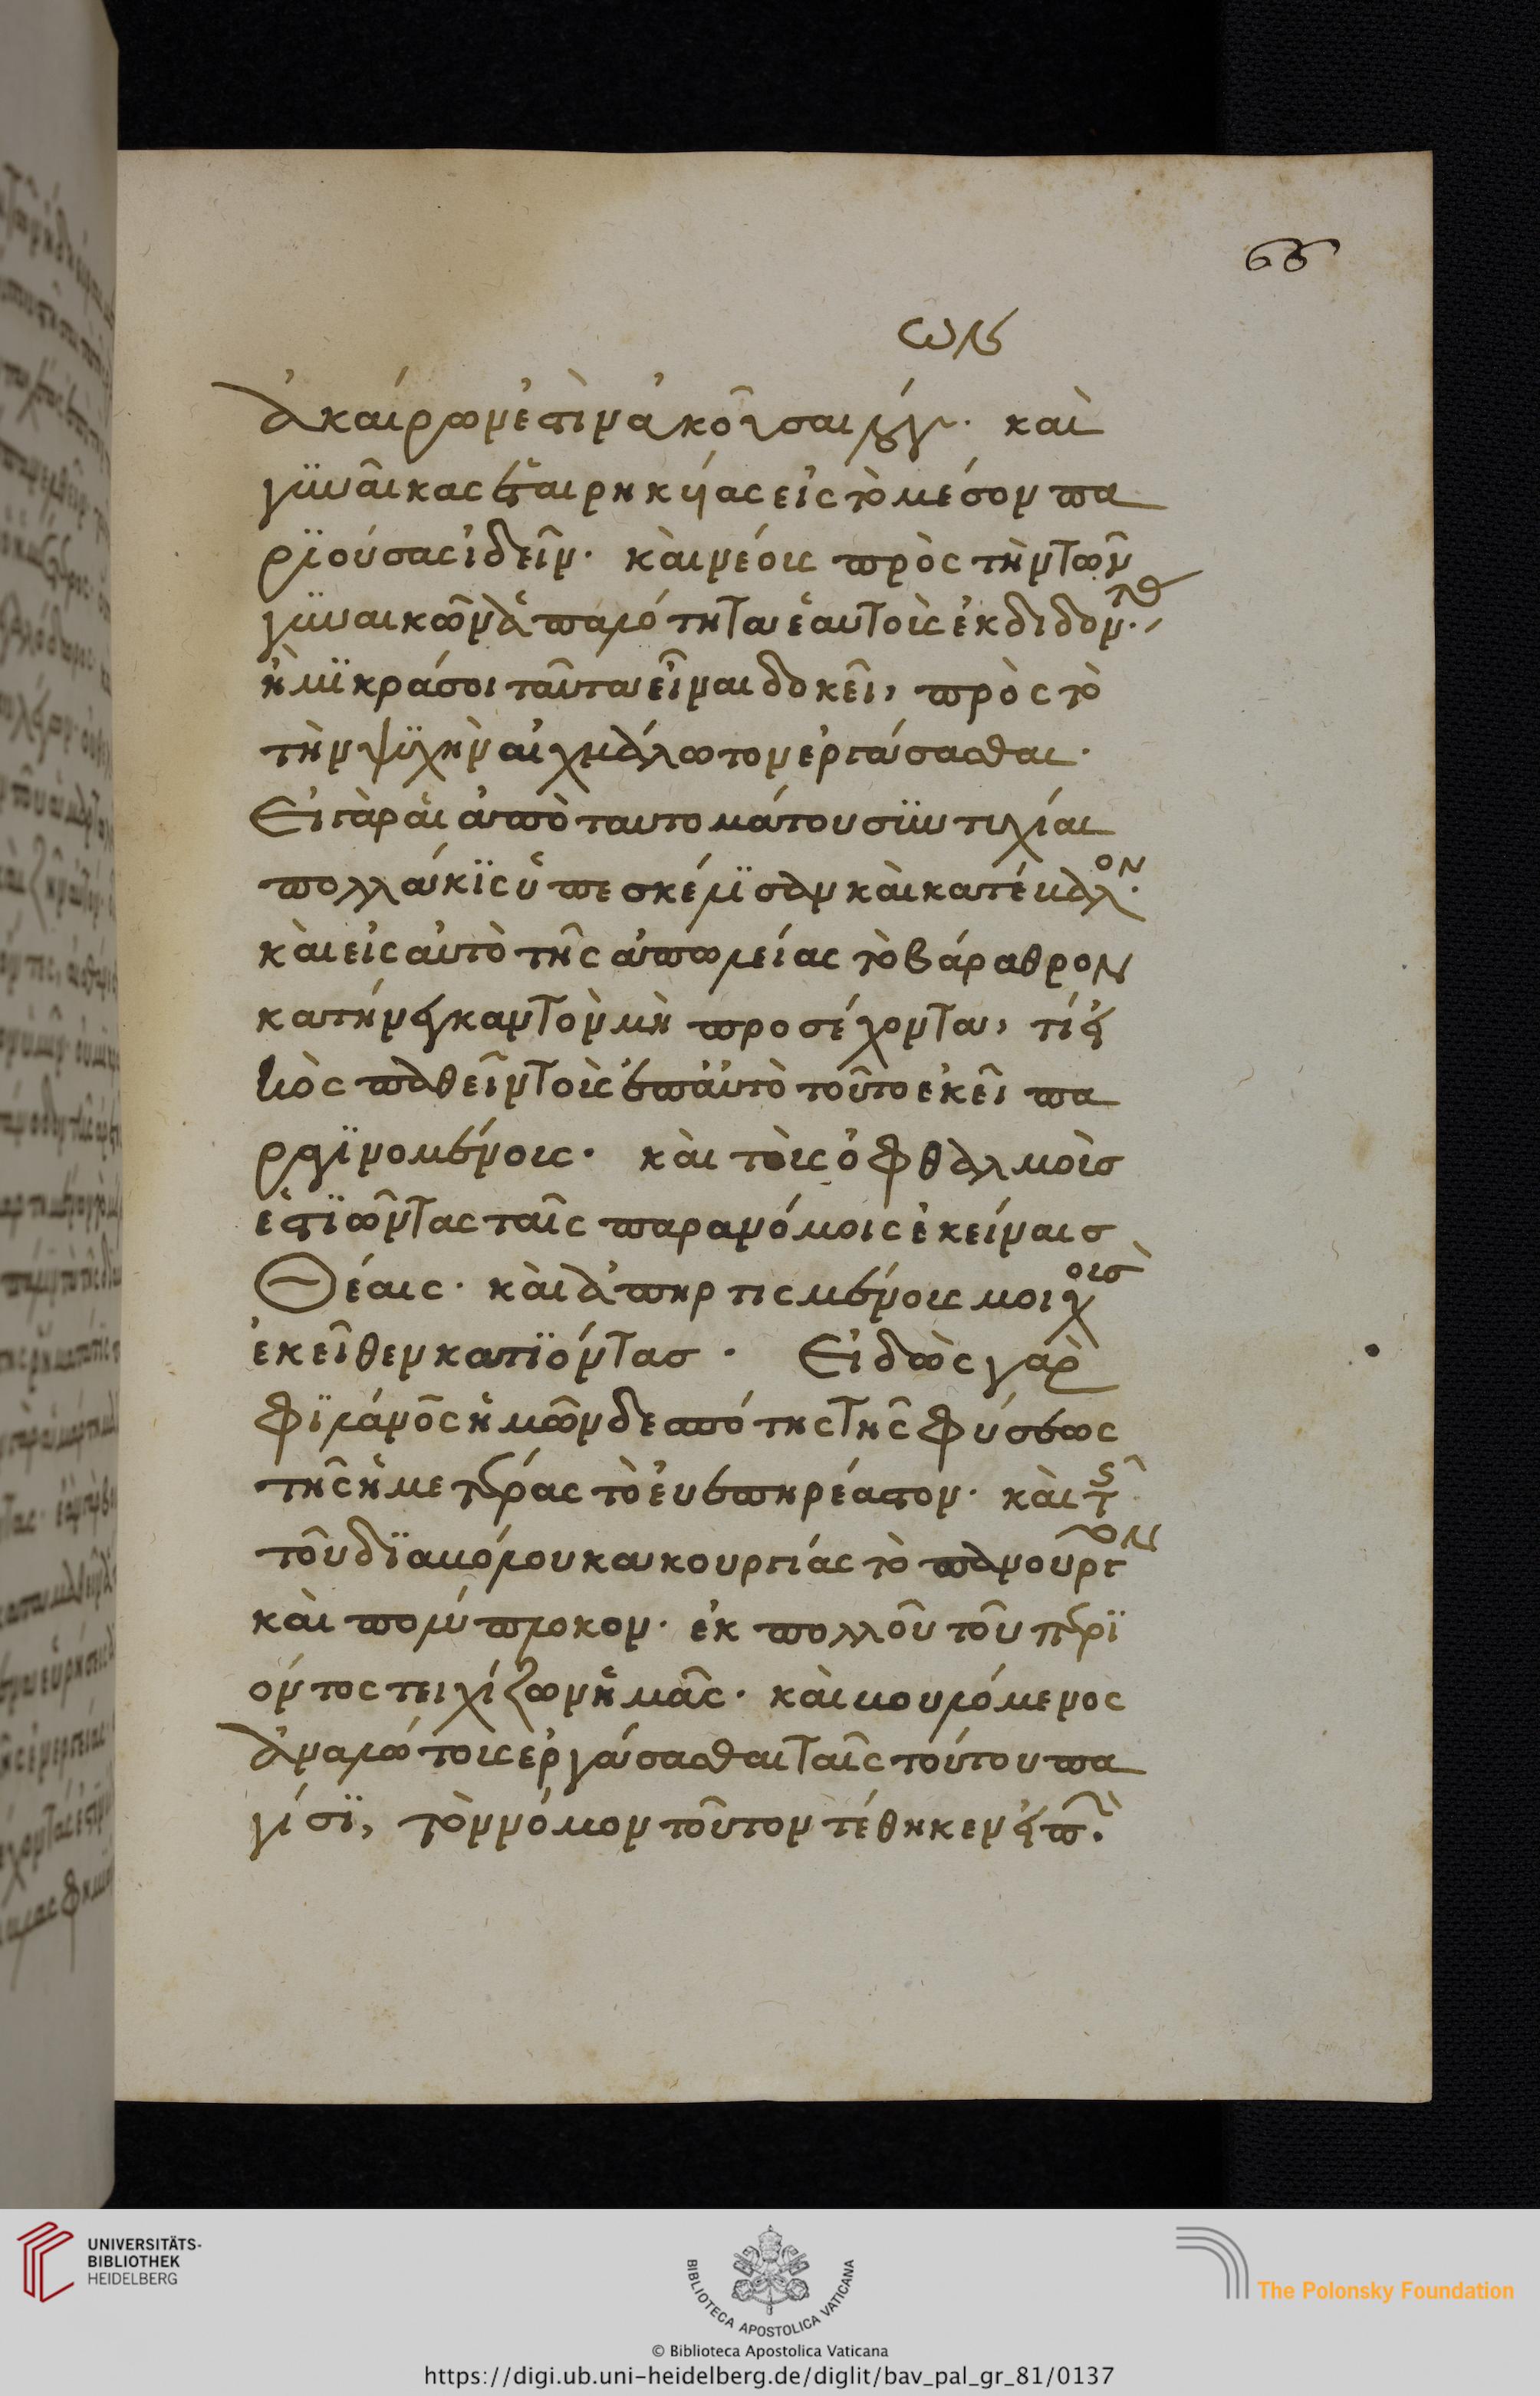 66
ἀκαίρων ἐστὶν ἀκοῦσαι καὶ
γϋναῖκας ἑταιρηκυίας εἰς τὸ μέσον πα
ρϊούσας ἰδεῖν. καὶ νέους πρὸς τὴν τῶν
γϋναικῶν ἁπαλότητα ἑαυτοὺς ἐκδιδόντας.
ἢ μϊκρά σοι ταῦτα εἶναι δοκεῖ, πρὸς τὸ
τὴν ψϋχὴν αἰχμάλωτον ἐργάσασθαι.
Εἰ γὰρ αἱ ἀπὸ ταυτομάτου σϋντυχίαι
πολλάκϊς ὑπεσκέλϊσαν καὶ κατέβαλον.
καὶ εἰς αὐτὸ τῆς ἀπωλείας τὸ βάραθρον
κατήνεγκαν τὸν μὴ προσέχοντα, τί εἰ
κὸς παθεῖν τοὺς ἐπ' αὐτὸ τοῦτο ἐκεῖ πα
ραγϊνομένους. καὶ τοὺς ὀφθαλμοὺς
ἑστϊῶντας ταῖς παρανόμοις ἐκείναις
Θέαις. καὶ ἀπηρτισμένους μοιχοὺς
ἐκεῖθεν κατϊόντας. Εἰδὼς γὰρ
φϊλάνος ἡμῶν δεσπότης τῆς φύσεως
τῆς ἡμετέρας τὸ εὐεπηρέαστον. καὶ τῆς
τοῦ δϊαβόλου κακουργίας τὸ πανοῦργον
καὶ πολύπλοκον. ἐκ πολλοῦ τοῦ περϊ
όντος τειχίζων ἡμᾶς. καὶ βουλόμενος
ἀναλώτους ἐργάσασθαι ταῖς τούτου πα
γίσϊ, τὸν νόμον τοῦτον τέθηκεν
UNIVERSITÄTS-
BIBLIOTHEK
HEIDELBERG
BIBLIOTECA APOSTOLICA VATICANA
The Polonsky Foundation
© Biblioteca Apostolica Vaticana
https://digi.ub.uni-heidelberg.de/diglit/bav_pal_gr_81/0137